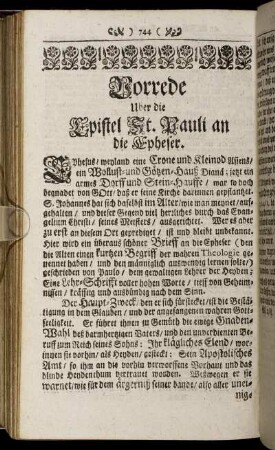 ) 744 (
Vorrede
Uber die
Epistel St. Pauli an
die Epheser.
EPhesus, weyland eine Crone und Kleinod Asiens,
ein Wollust- und Götzen-Hauß Dianä; jetzt ein
armes Dorff und Stein-Hauffe, war so hoch
begnadet von GOtt, daß er seine Kirche darinnen gepflantzet.
S. Johannes hat sich daselbst im Alter, wie man meynet, auf-
gehalten, und dieser Gegend viel herrliches durch das Evan-
gelium Christi, seines Meisters, ausgerichtet. Wer es aber
zu erst an diesem Ort geprediget, ist und bleibt unbekannt.
Hier wird ein überaus schöner Brieff an die Epheser (den
die Alten einen kurtzen Begriff der wahren Theologie ge-
nennet haben, und den männiglich auswendig lernen solte,)
geschrieben von Paulo, dem gewaltigen Lehrer der Heyden;
Eine Lehr-Schrifft voller hohen Worte, tieff von Geheim-
nissen, kräfftig und ausbündig nach dem Sinn.
Der Haupt-Zweck, den er sich fürstecket, ist die Bestä-
tigung in dem Glauben, und der angefangenen wahren Gott-
seeligkeit. Er führet ihnen zu Gemüth die ewige Gnaden-
Wahl des barmhertzigen Vaters, und den unverdienten Be-
ruff zum Reich seines Sohns: Ihr klägliches Elend, wor-
innen sie vorhin, als Heyden, gesteckt: Sein Apostolisches
Amt, so ihm an die vorhin verworffene Vorhaut und das
blinde Heydenthum vertrauet worden. Weßwegen er sie
warnet, wie für dem ärgerniß seiner bande, also aller unei-
nig-